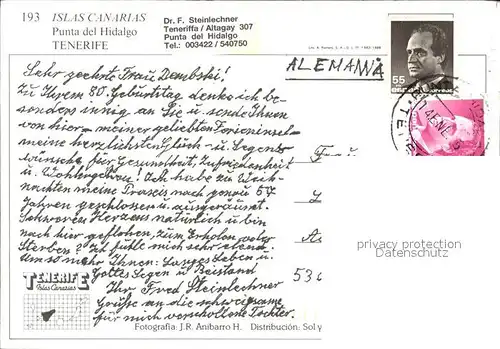 193 ISLAS CANARIAS
Punta del Hidalgo
TENERIFE
Dr. F. Steinlechner
Teneriffa / Altagay 307
Punta del Hidalgo
Tel.: 003422 / 540750
ALEMANIA
55
Sehr geehrte Frau Dembski!
Zu Ihrem 80. Geburtstag denke ich be-
sonders innig an Sie u. sende Ihnen
von hier - meiner geliebten Ferieninsel -
meine herzlichsten Glück- u. Segens-
wünsche für Gesundheit, Zufriedenheit
u. Wohlergehen! Ich habe zu Weih-
nachten meine Praxis nach genau 57
Jahren geschlossen u. ausgeräumt.
Schweren Herzens natürlich u. bin
nach hier geflohen, zum Erholen oder
Sterben? Ich fühl mich sehr elend.
Um so mehr Ihnen: Langes Leben u.
Gottes Segen u. Beistand
Ihr Fred Steinlechner
Grüße an die schweigsame
für mich verschollene Tochter.
Frau
536
privacy protection
Datenschutz
TENERIFE
Islas Canarias
Fotografía: J.R. Anibarro H. Distribución: Sol y